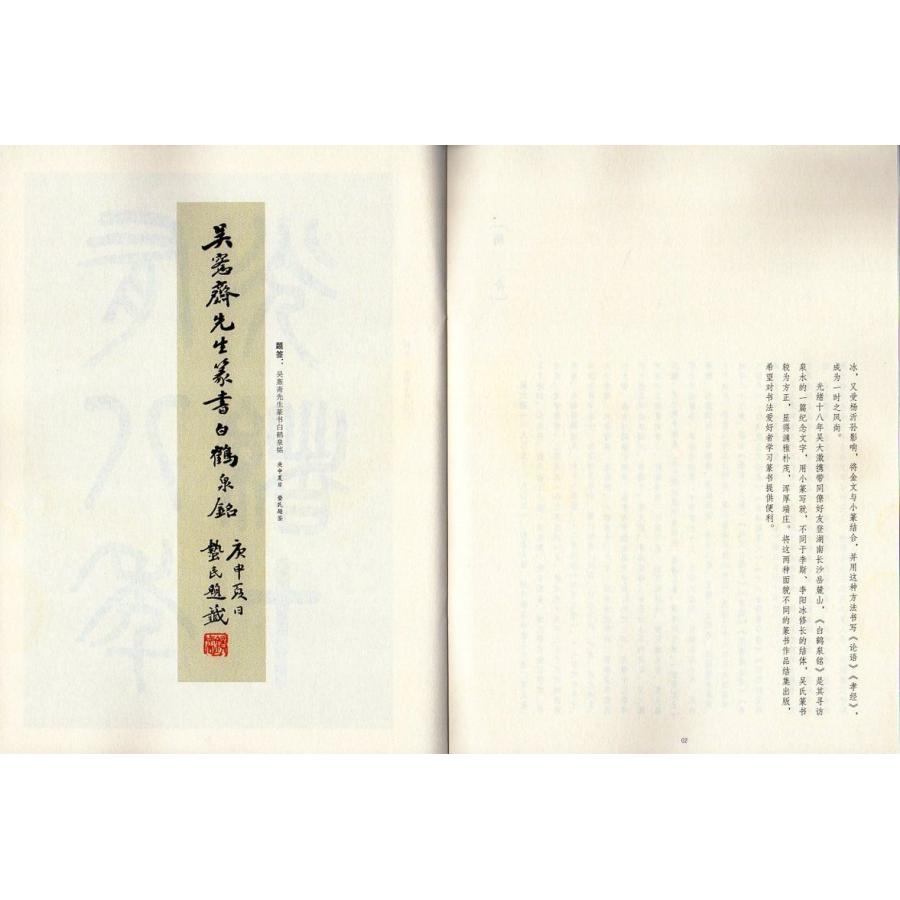 冰，又受杨沂孙影响，将金文与小篆结合，并用这种方法书写《论语》《孝经》，
成为一时之风尚。
光绪十八年吴大澂携带同僚好友登湖南长沙岳麓山，《白鹤泉铭》是其寻访
泉水的一篇纪念文字，用小篆写就，不同于李斯、李阳冰修长的结体，吴氏篆书
较为方正，显得满雅朴茂，浑厚端庄。将这两种面貌不同的篆书作品结集出版，
希望对书法爱好者学习篆书提供便利。
02
题签：吴愙斋先生篆书白鹤泉铭 庚申夏日 蛰民题签
吴愙齋先生篆書白鶴泉銘
庚申夏日
蟄民題籤